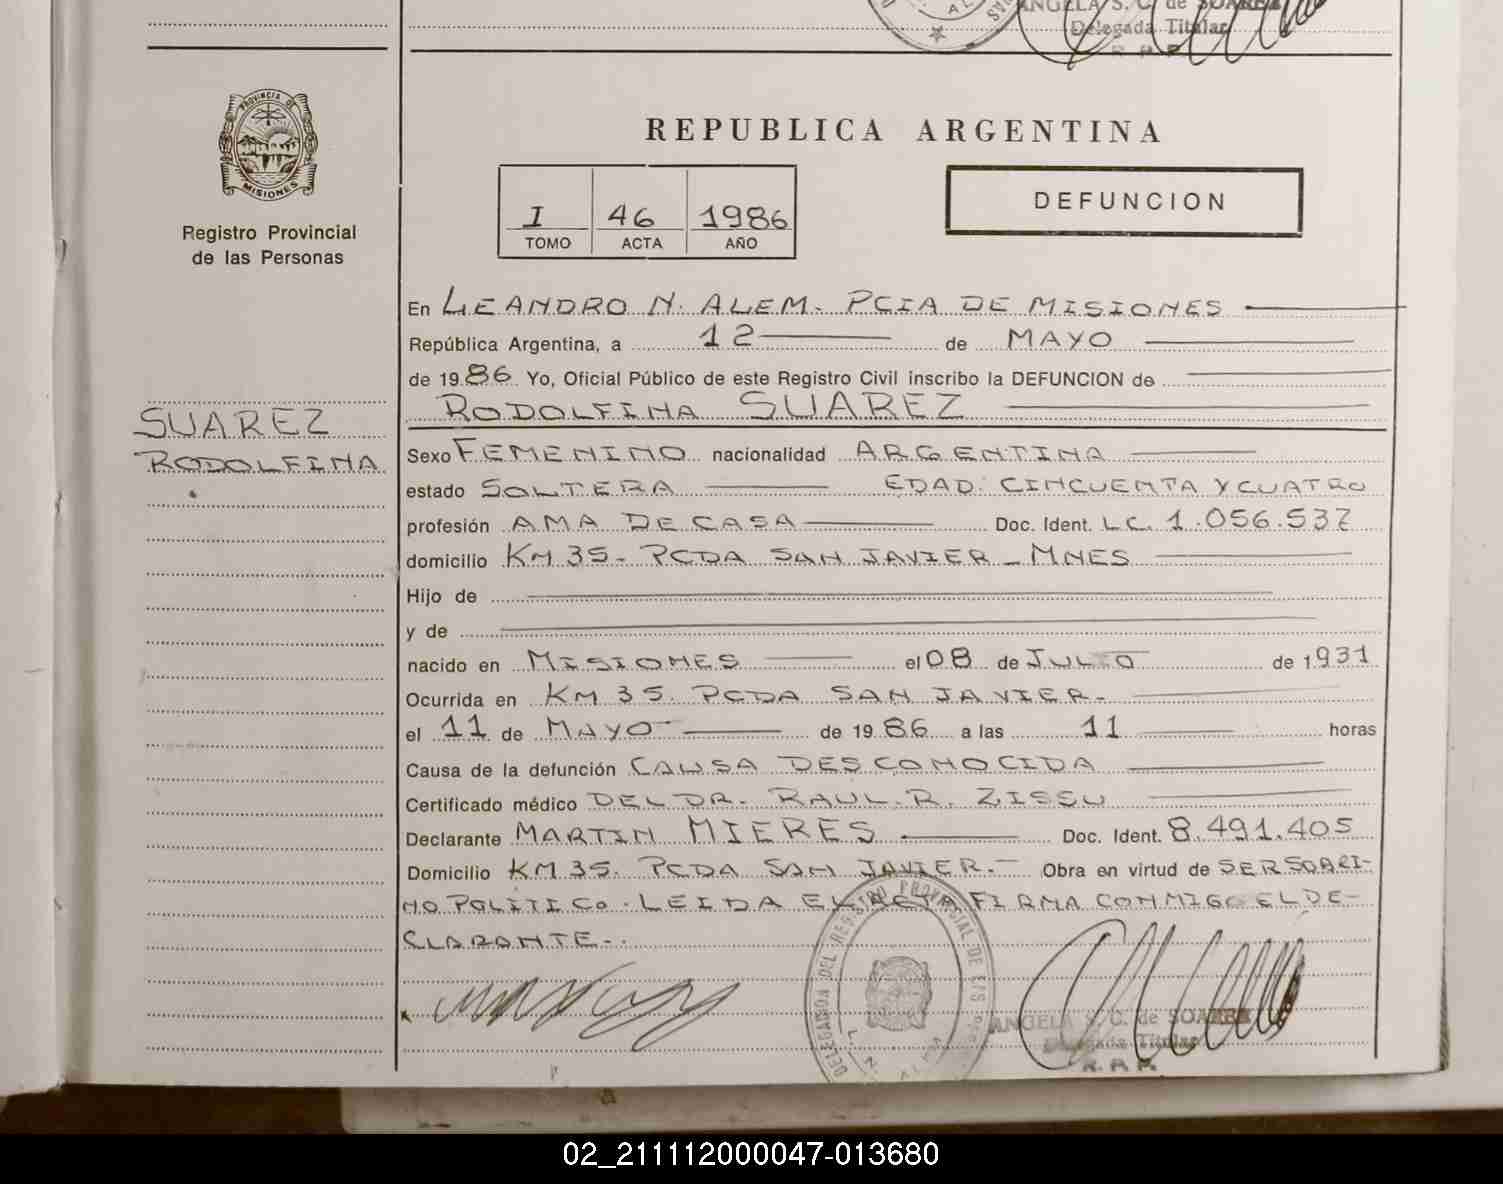 ANGELA S. C. de SOAREZ
Delegada Titular
R. P. P.
PROVINCIA DE
MISIONES
Registro Provincial
de las Personas
SUAREZ
RODOLFINA
REPUBLICA ARGENTINA
I 46 1986
TOMO ACTA AÑO
DEFUNCION
En LEANDRO N. ALEM. PCIA DE MISIONES
República Argentina, a 12 de MAYO
de 1986 Yo, Oficial Público de este Registro Civil inscribo la DEFUNCION de
RODOLFINA SUAREZ
Sexo FEMENINO nacionalidad ARGENTINA
estado SOLTERA EDAD: CINCUENTA Y CUATRO
profesión AMA DE CASA Doc. Ident. L.C. 1.056.537
domicilio KM 35- PCDA SAN JAVIER - MNES
Hijo de
y de
nacido en MISIONES el 08 de JULIO de 1931
Ocurrida en KM 35. PCDA SAN JAVIER-
el 11 de MAYO de 1986 a las 11 horas
Causa de la defunción CAUSA DESCONOCIDA
Certificado médico DEL DR. RAUL R. ZISSU
Declarante MARTIN MIERES Doc. Ident. 8.491.405
Domicilio KM 35. PCDA SAN JAVIER.- Obra en virtud de SER SOBRI-
NO POLITICO. LEIDA EL ACTA FIRMA CONMIGO EL DE-
CLARANTE-.
DELEGACION DEL REGISTRO PROVINCIAL DE LAS PERSONAS
L. N. ALEM
ANGELA S. C. de SOAREZ
Delegada Titular
R. P. P.
02_211112000047-013680